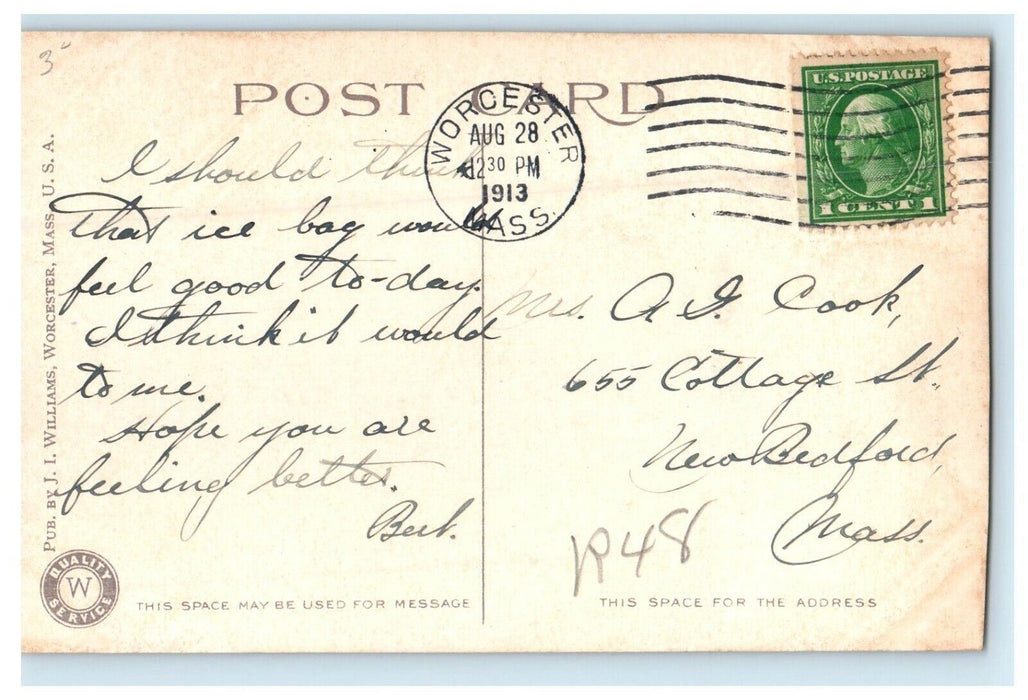 3
POST CARD
WORCESTER
AUG 28
12 30 PM
1913
MASS.
U.S. POSTAGE
1 CENT 1
I should think
that ice bag would
feel good to-day.
I think it would
to me.
Hope you are
feeling better.
Bert.
Mrs. A. I. Cook,
655 Cottage St.,
New Bedford,
Mass.
R48
PUB. BY J. I. WILLIAMS, WORCESTER, MASS., U. S. A.
QUALITY
W
SERVICE
THIS SPACE MAY BE USED FOR MESSAGE
THIS SPACE FOR THE ADDRESS